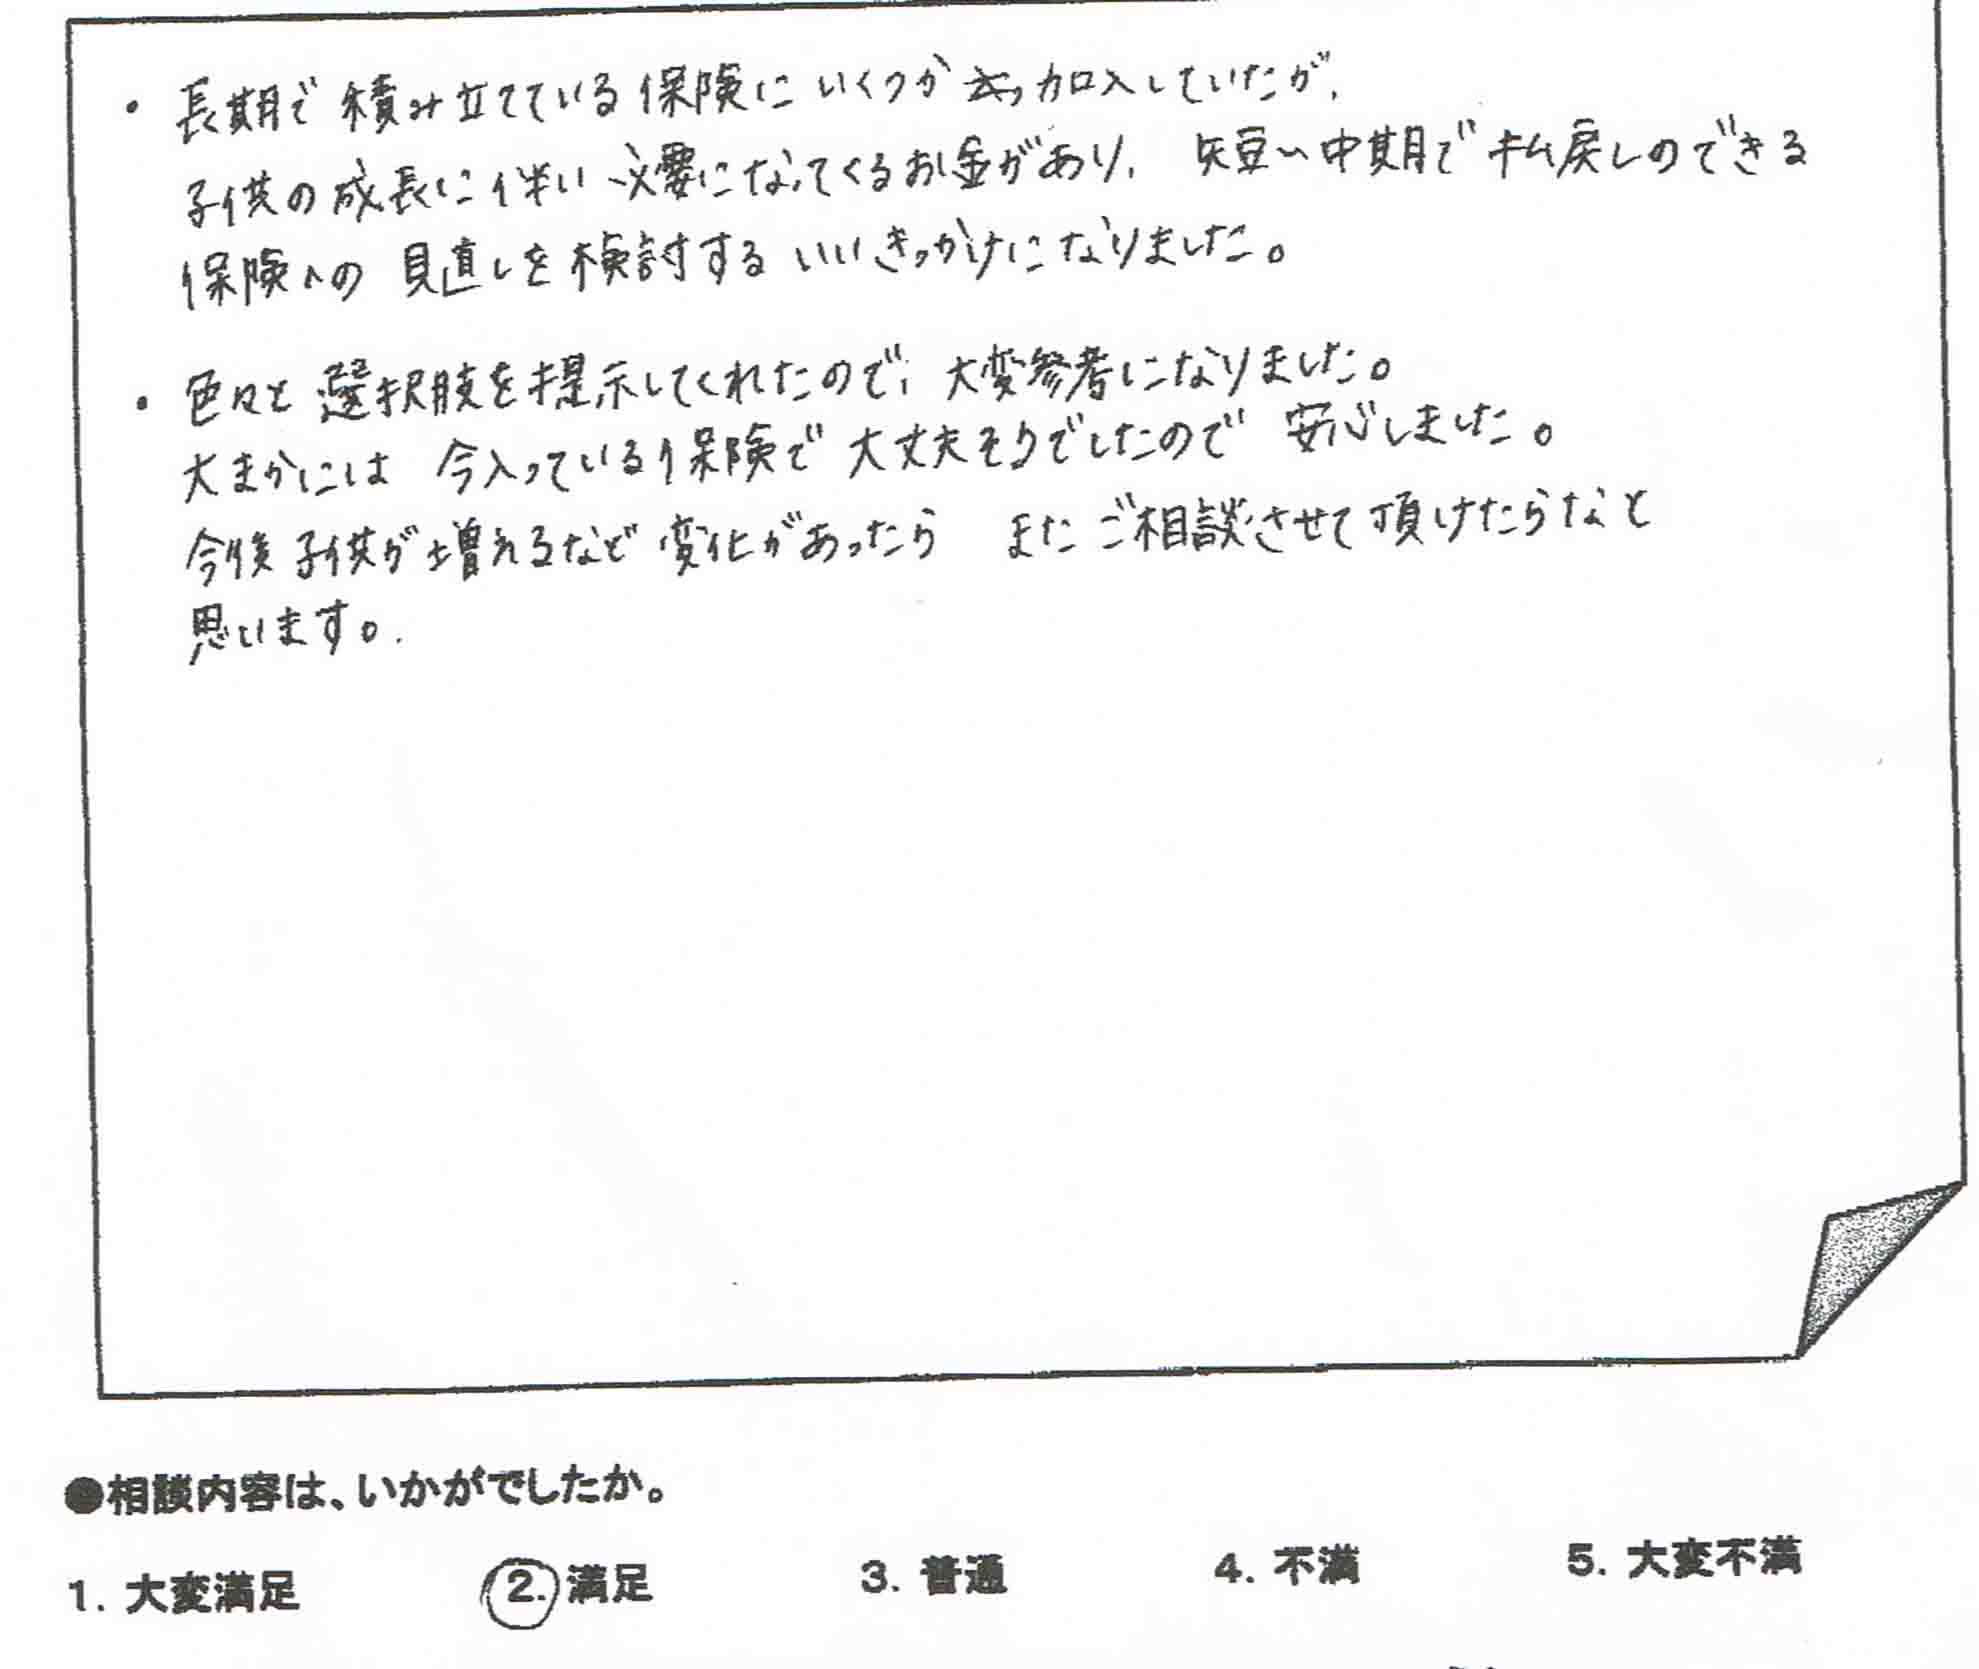 ・長期で積み立てている保険にいくつか加入していたが、
子供の成長に伴い必要になってくるお金があり、短〜中期で払戻しのできる
保険への見直しを検討するいいきっかけになりました。
・色々と選択肢を提示してくれたので、大変参考になりました。
大まかには 今入っている保険で大丈夫そうでしたので 安心しました。
今後子供が増えるなど変化があったら またご相談させて頂けたらなと
思います。
●相談内容は、いかがでしたか。
1. 大変満足 2. 満足 3. 普通 4. 不満 5. 大変不満